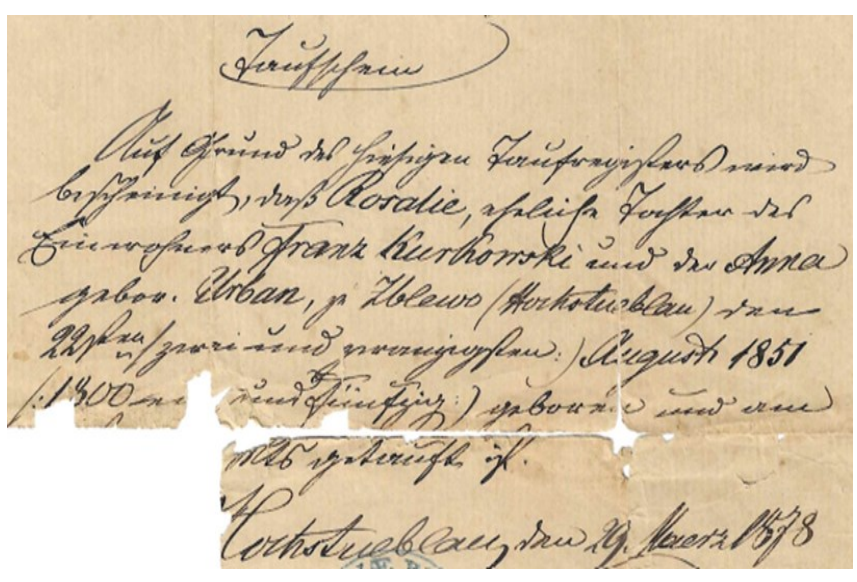 Taufschein
Auf Grund des hiesigen Taufregisters wird
bescheinigt, daß Rosalie, eheliche Tochter des
Einwohners Franz Kurkowski und der Anna
gebor. Urban, zu Zblewo (Hochstueblau) den
22sten /: zwei und zwanzigsten :) August 1851
/: 1800 ein und fünfzig :) geboren und am
getauft ist.
Hochstueblau, den 29. Maerz 1878